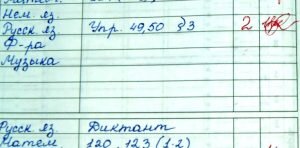 Нем. яз.
Русск. яз. Упр. 49,50 §3 2
Ф-ра
Музыка
Русск. яз. Диктант
Матем. 120, 123 (1-2)